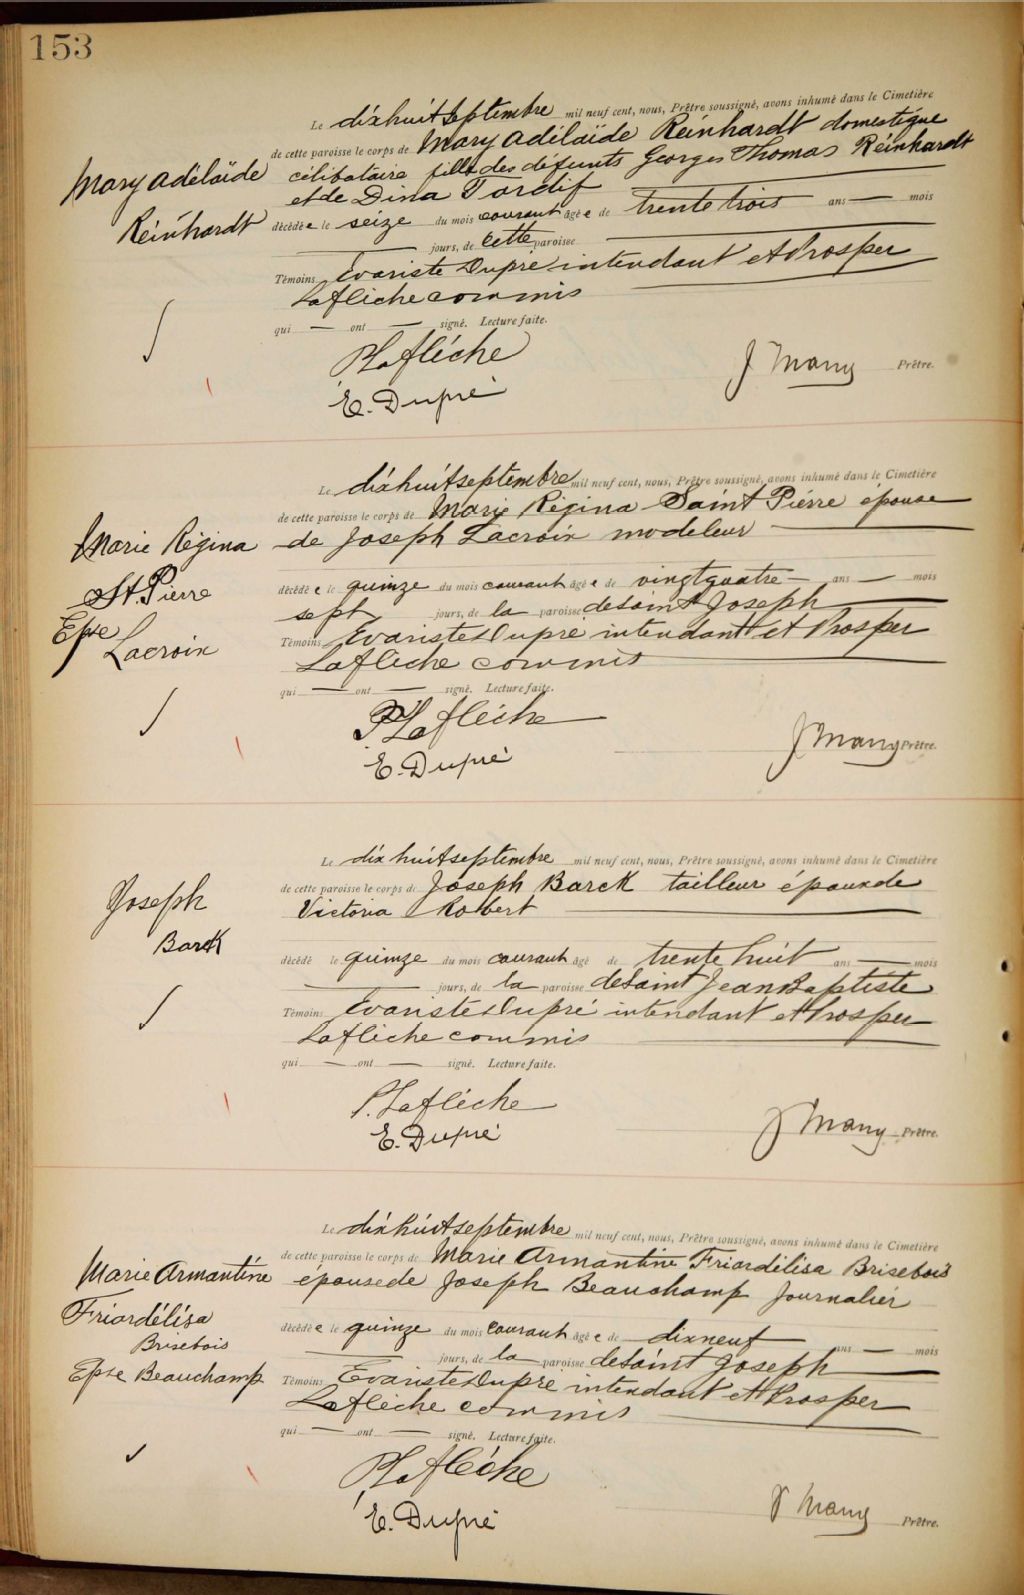 153
Le dix huit septembre mil neuf cent, nous, Prêtre soussigné, avons inhumé dans le Cimetière
de cette paroisse le corps de Mary Adélaïde Reinhardt domestique
Mary Adélaïde
Reinhardt
célibataire fille des défunts Georges Thomas Réinhardt
et de Dina Tardif
décédée le seize du mois courant âgée de trente trois ans — mois
jours, de cette paroisse
Témoins Evariste Dupré intendant et Prosper
Lafléche commis
qui — ont — signé. Lecture faite.
P Lafléche
J Many Prêtre.
E. Dupré
Le dix huit septembre mil neuf cent, nous, Prêtre soussigné, avons inhumé dans le Cimetière
de cette paroisse le corps de Marie Régina Saint Pierre épouse
Marie Régina
St. Pierre
Epse
Lacroix
de Joseph Lacroix modeleur
décédée le quinze du mois courant âgée de vingt quatre ans — mois
sept jours, de la paroisse de Saint Joseph
Témoins Evariste Dupré intendant et Prosper
Lafléche commis
qui — ont — signé. Lecture faite.
P Lafléche
J Many Prêtre.
E. Dupré
Le dix huit septembre mil neuf cent, nous, Prêtre soussigné, avons inhumé dans le Cimetière
de cette paroisse le corps de Joseph Barck tailleur époux de
Joseph
Barck
Victoria Robert
décédé le quinze du mois courant âgé de trente huit ans — mois
jours, de la paroisse de Saint Jean Baptiste
Témoins Evariste Dupré intendant et Prosper
Lafléche commis
qui — ont — signé. Lecture faite.
P. Lafléche
J Many Prêtre.
E. Dupré
Le dix huit septembre mil neuf cent, nous, Prêtre soussigné, avons inhumé dans le Cimetière
de cette paroisse le corps de Marie Armantine Friardélisa Brisebois
Marie Armantine
Friardélisa
Brisebois
Epse Beauchamp
épouse de Joseph Beauchamp Journalier
décédée le quinze du mois courant âgée de dix neuf ans — mois
jours, de la paroisse de Saint Joseph
Témoins Evariste Dupré intendant et Prosper
Lafléche commis
qui — ont — signé. Lecture faite.
P Lafléche
J Many Prêtre.
E. Dupré